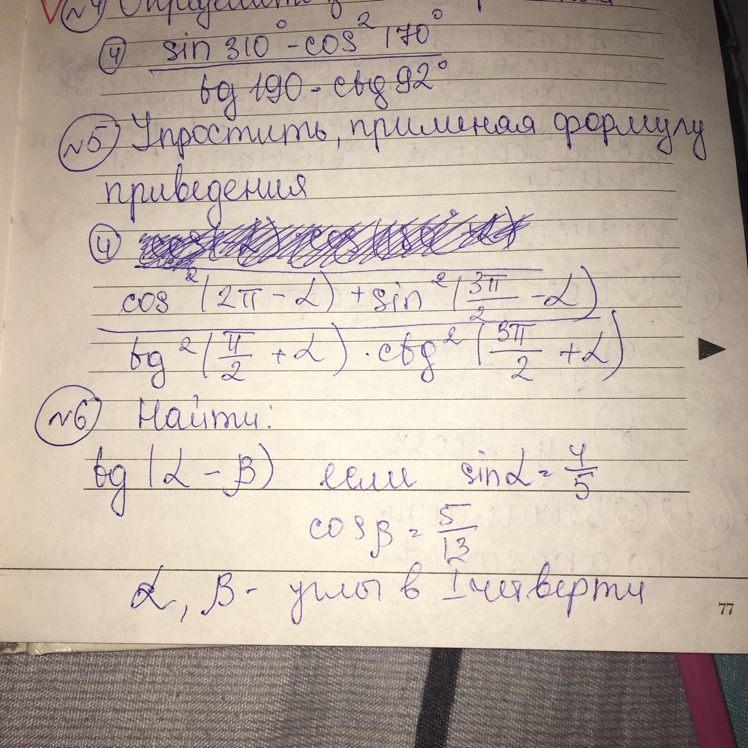 №4 Определить
4) sin 310° - cos² 170°
tg 190 - ctg 92°
№5 Упростить, применяя формулу
приведения
4)
cos² (2π - α) + sin² (3π/2 - α)
tg² (π/2 + α) · ctg² (3π/2 + α)
№6 Найти:
tg (α - β) если sin α = 4/5
cos β = 5/13
α, β - углы в I четверти
77